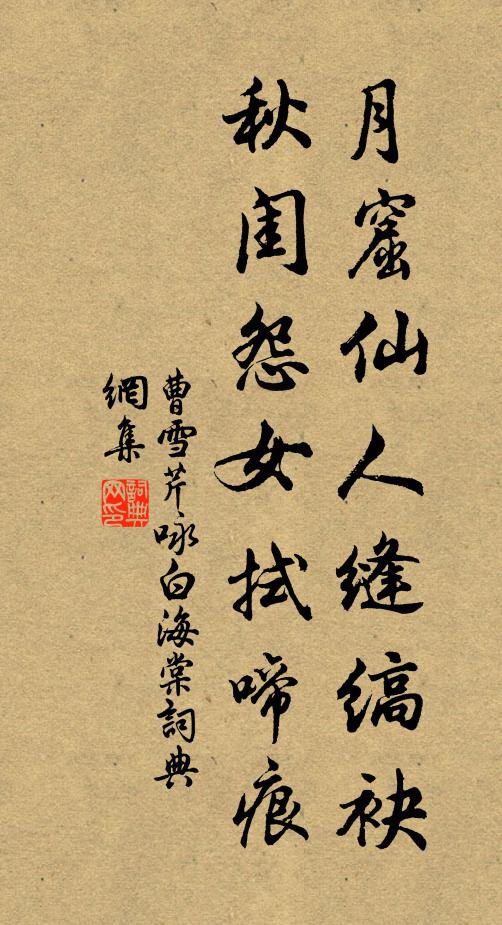 月窟仙人缝缟袂
秋闺怨女拭啼痕
曹雪芹咏白海棠詞典
網集
詞典網印